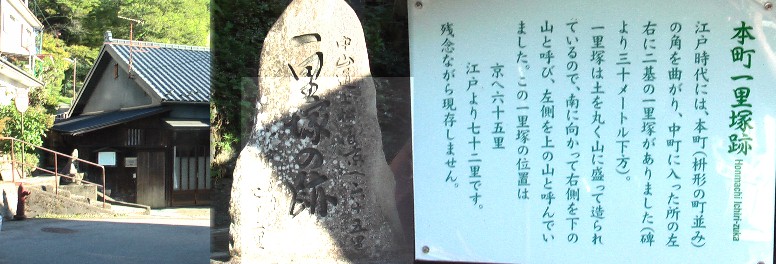 一里塚の跡
本町一里塚跡
Honmachi Ichiri-zuka
江戸時代には、本町(枡形の町並み)
の角を曲がり、中町に入った所の左
右に二基の一里塚がありました(碑
より三十メートル下方)。
一里塚は土を丸く山に盛って造られ
ているので、南に向かって右側を下の
山と呼び、左側を上の山と呼んでい
ました。この一里塚の位置は
京へ六十五里
江戸より七十二里です。
残念ながら現存しません。